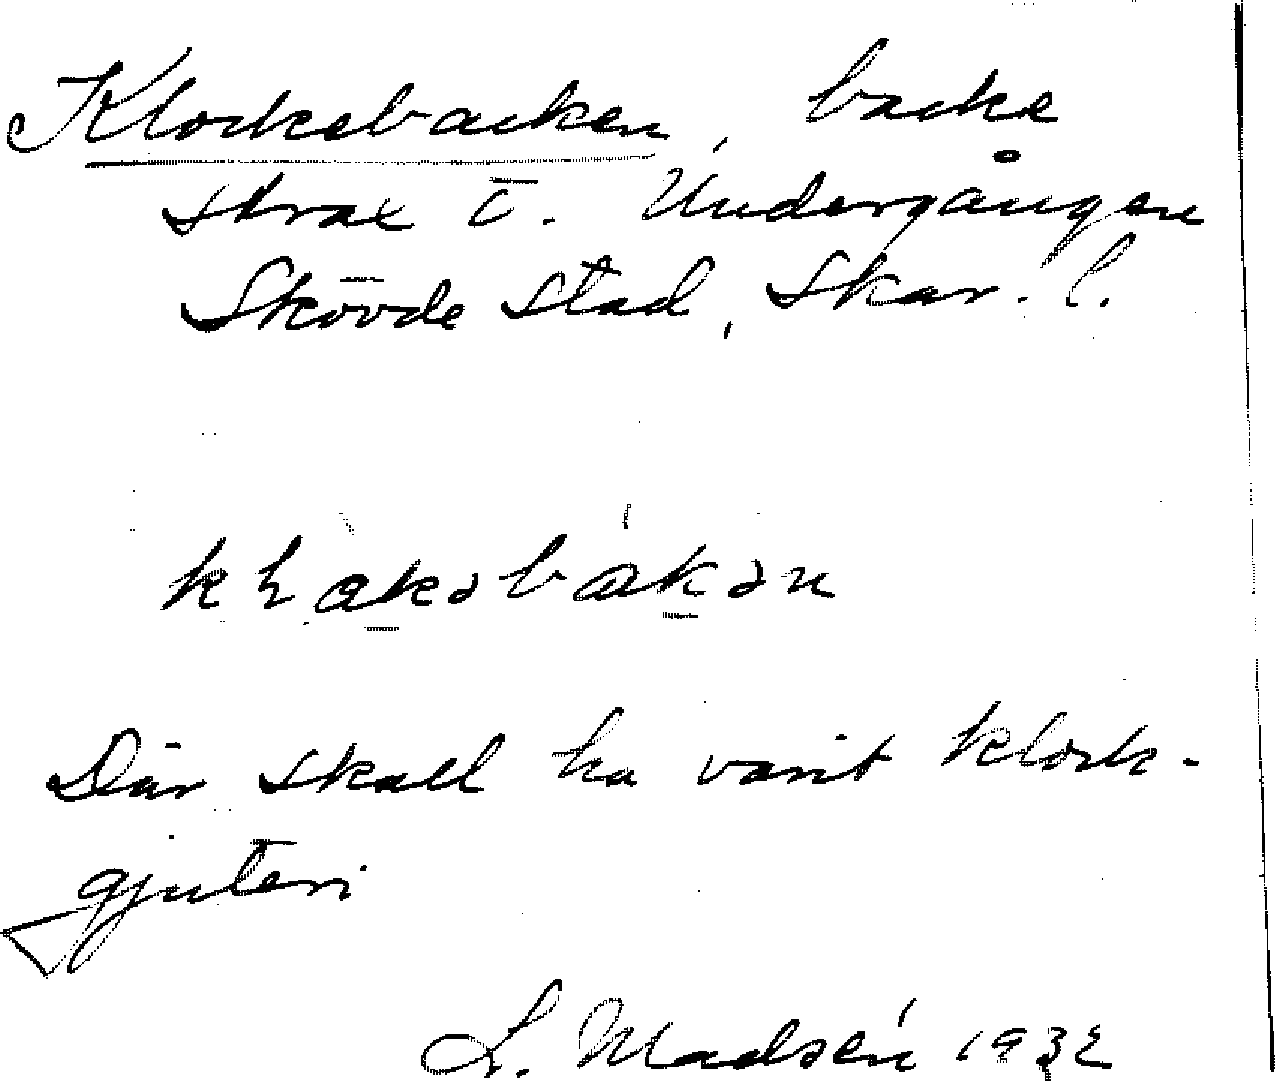 Klockebacken, backe
strax ö. Undergången
Skövde stad, Skar. l.
Där skall ha varit klock-
gjuteri
L. Madsén 1932